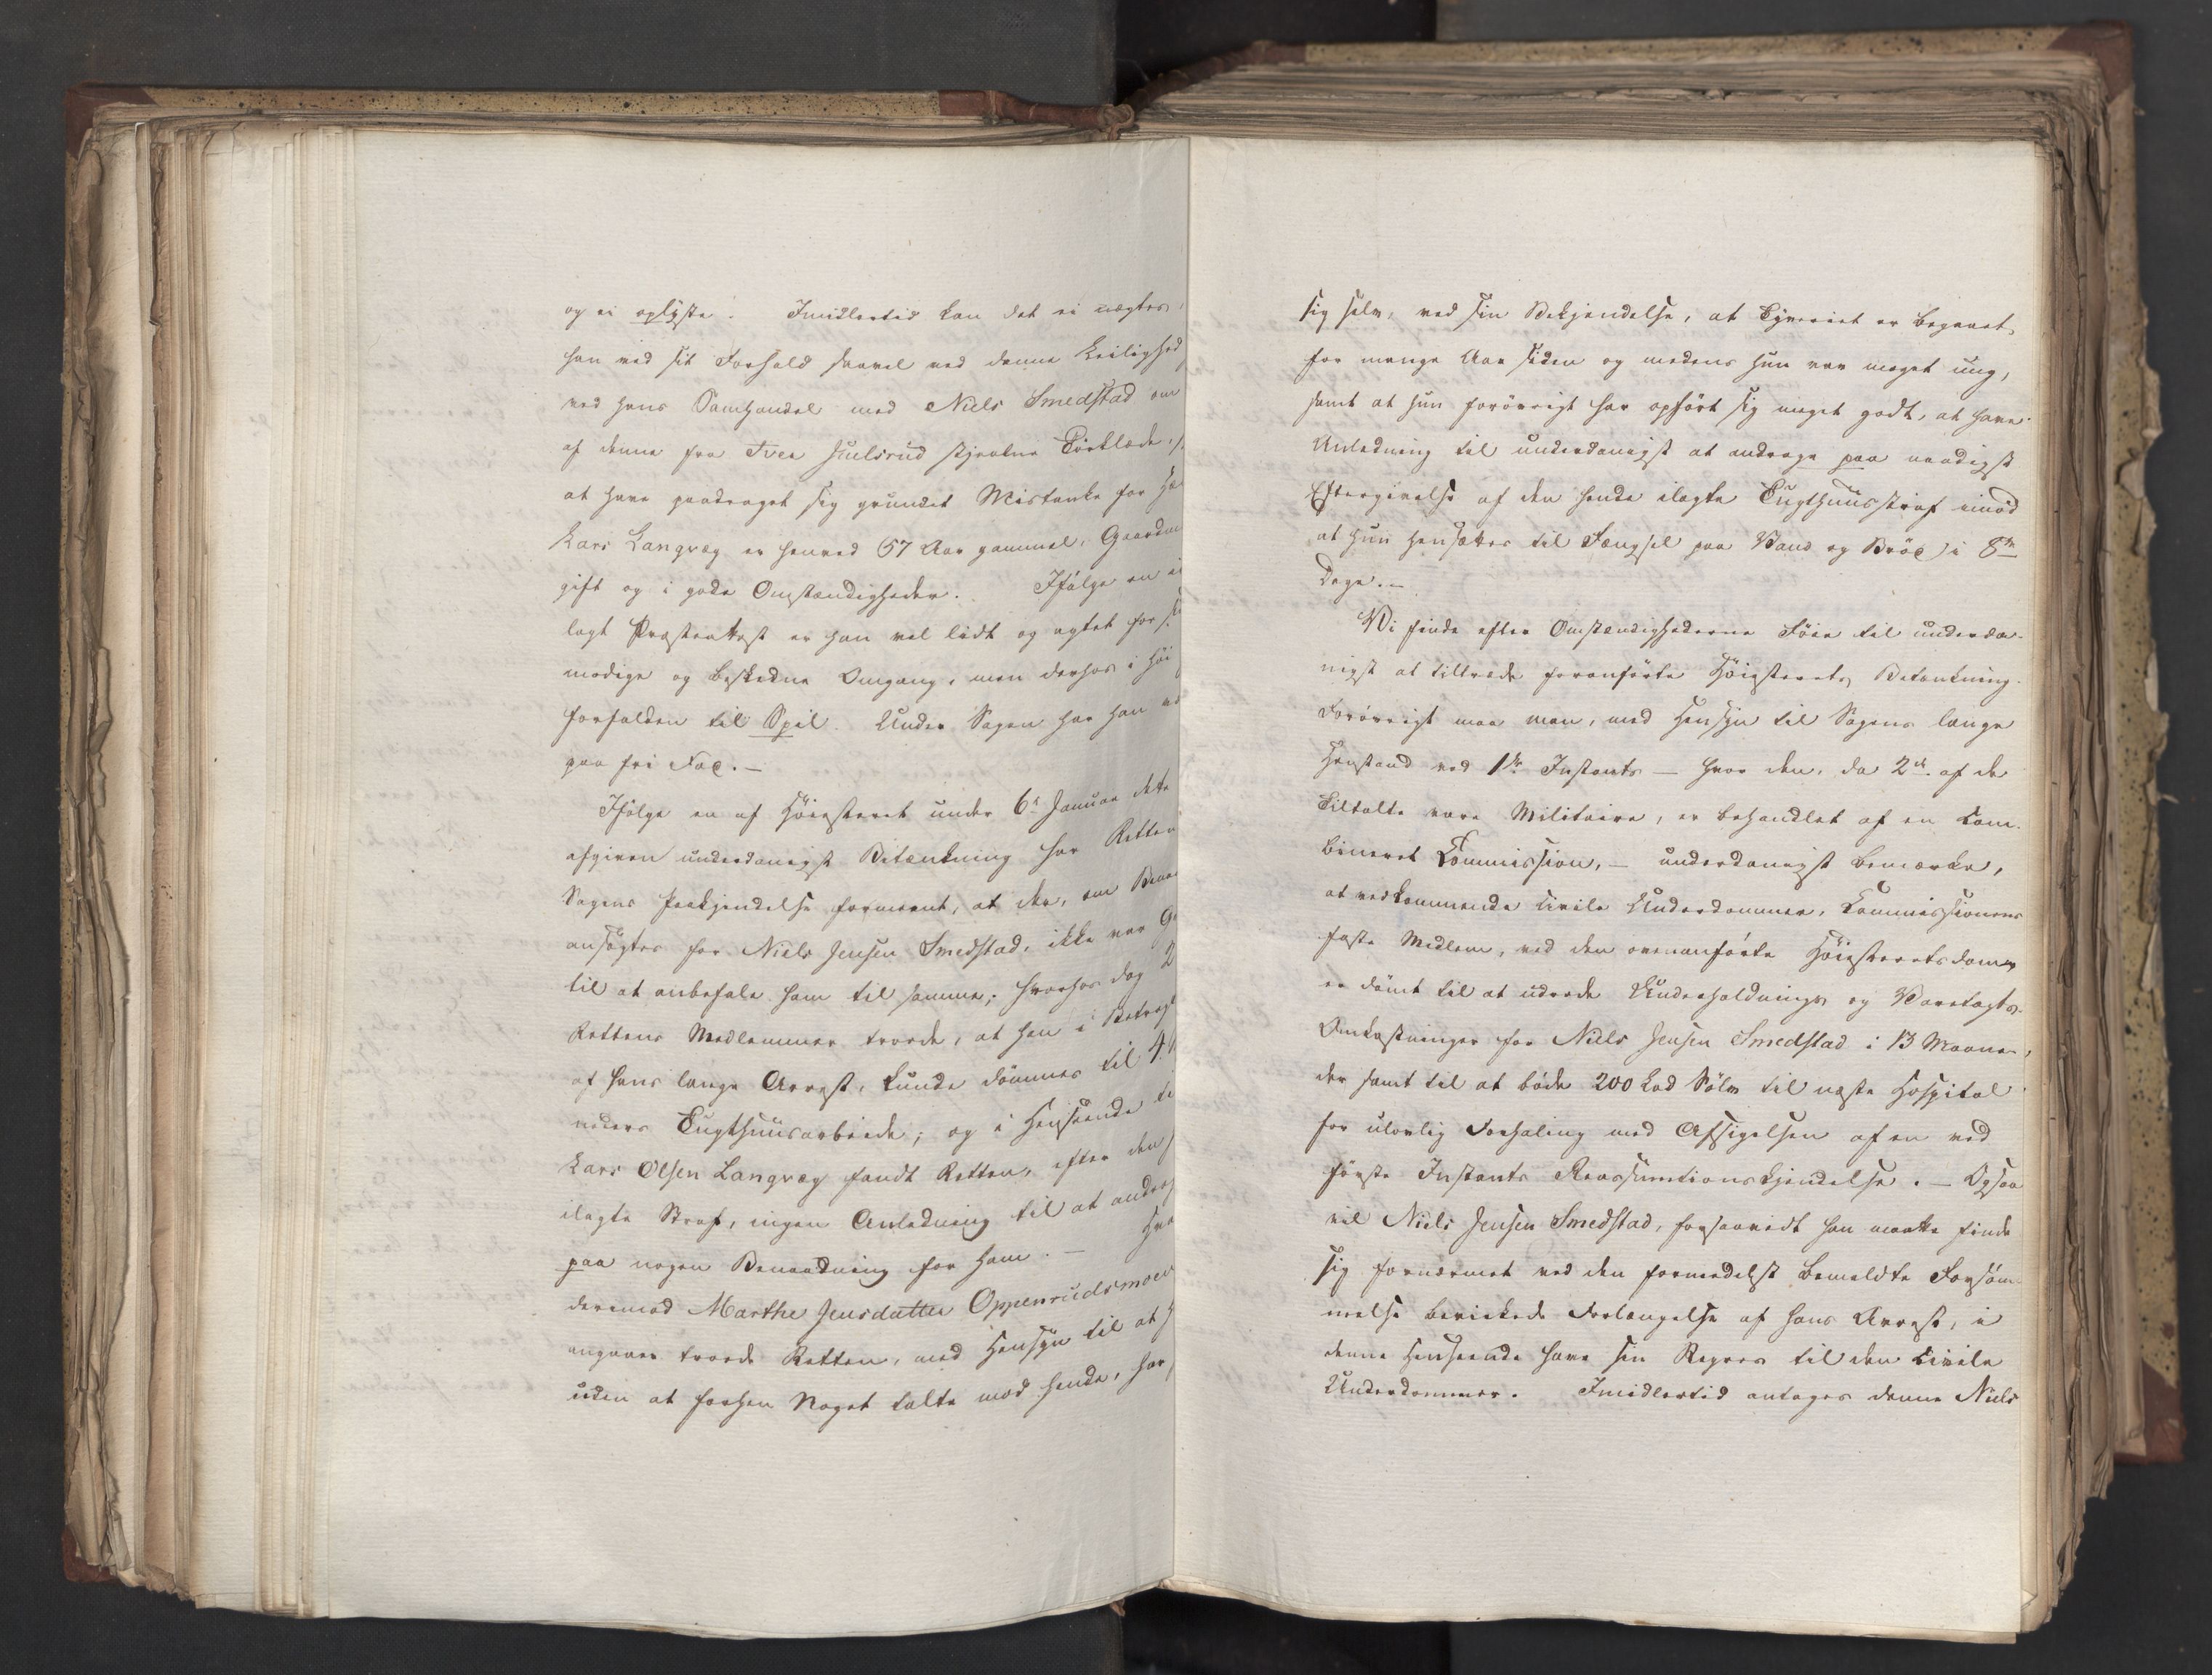 og ei oplyste. Imidlertid kan det ei nægtes,
han ved sit Forhold saavel ved denne Leilighed
ved hans Samhandel med Niels Smedstad om
af denne fra Iver Huulsrud stjaalne Tørklæde,
at have paadraget sig grundet Mistanke for
Lars Langvæg er henved 57 Aar gammel, Gaardm
gift og i gode Omstændigheder. Ifølge en
lagt Præsteattest er han vel lidt og agtet for
modige og beskedne Omgang, men derhos i høi
forfalden til Spil. Under Sagen har han
paa fri Fod.—
Ifølge en af Høiesteret under 6te Januar dette
afgiven underdanigst Betænkning har Retten
Sagens Paakjendelse formeent, at der, om Benaa
ansøgtes for Niels Jensen Smedstad, ikke var
til at anbefale ham til samme; hvorhos dog 2
Rettens Medlemmer troede, at han i Betragt
af hans lange Arrest, kunde dømmes til 4
neders Tugthuusarbeide; og i Henseende
Lars Olsen Langvæg fandt Retten, efter den
ilagte Straf, ingen Anledning til at andrag
paa nogen Benaadning for ham. — Hva
derimod Marthe Jensdatter Oppenrudsmoen
angaaer troede Retten, med Hensyn til at
uden at forhen Noget talte mod hende, har
sig selv, ved sin Bekjendelse, at Tyveriet er begaaet
for mange Aar siden og medens hun var meget ung,
samt at hun forövrigt har opført sig meget godt, at have
Anledning til underdanigst at andrage paa naadigst
Eftergivelse af den hende ilagte Tugthuusstraf imod
at hun hensættes til Fængsel paa Vand og Bröd i 8te
Dage.—
Vi finde efter Omstændighederne Föie til underda-
nigst at tiltræde foranførte Höiesterets Betænkning.
Forövrigt maa man, med Hensyn til Sagens lange
Henstand ved 1ste Instants — hvor den, da 2de af de
Tiltalte vare Militaire, er behandlet af en kom-
bineret Commission, — underdanigst bemærke,
at vedkommende civile Underdommer, Commissionens
faste Medlem, ved den ovenanførte Höiesteretsdom
er dömt til at udrede Underholdnings og Varetægts-
Omkostninger for Niels Jensen Smedstad i 13 Maane-
der samt til at böde 200 Lod Sölv til næste Hospital
for ulovlig Forhaling med Afsigelsen af en ved
förste Instants Reassumtionskjendelse. — Ogsaa
vil Niels Jensen Smedstad, forsaavidt han maatte finde
sig fornærmet ved den formedelst bemeldte Forsöm-
melse bevirkede Forlængelse af hans Arrest, i
denne Henseende have sin Regres til den civile
Underdommer. Imidlertid antages denne Niels